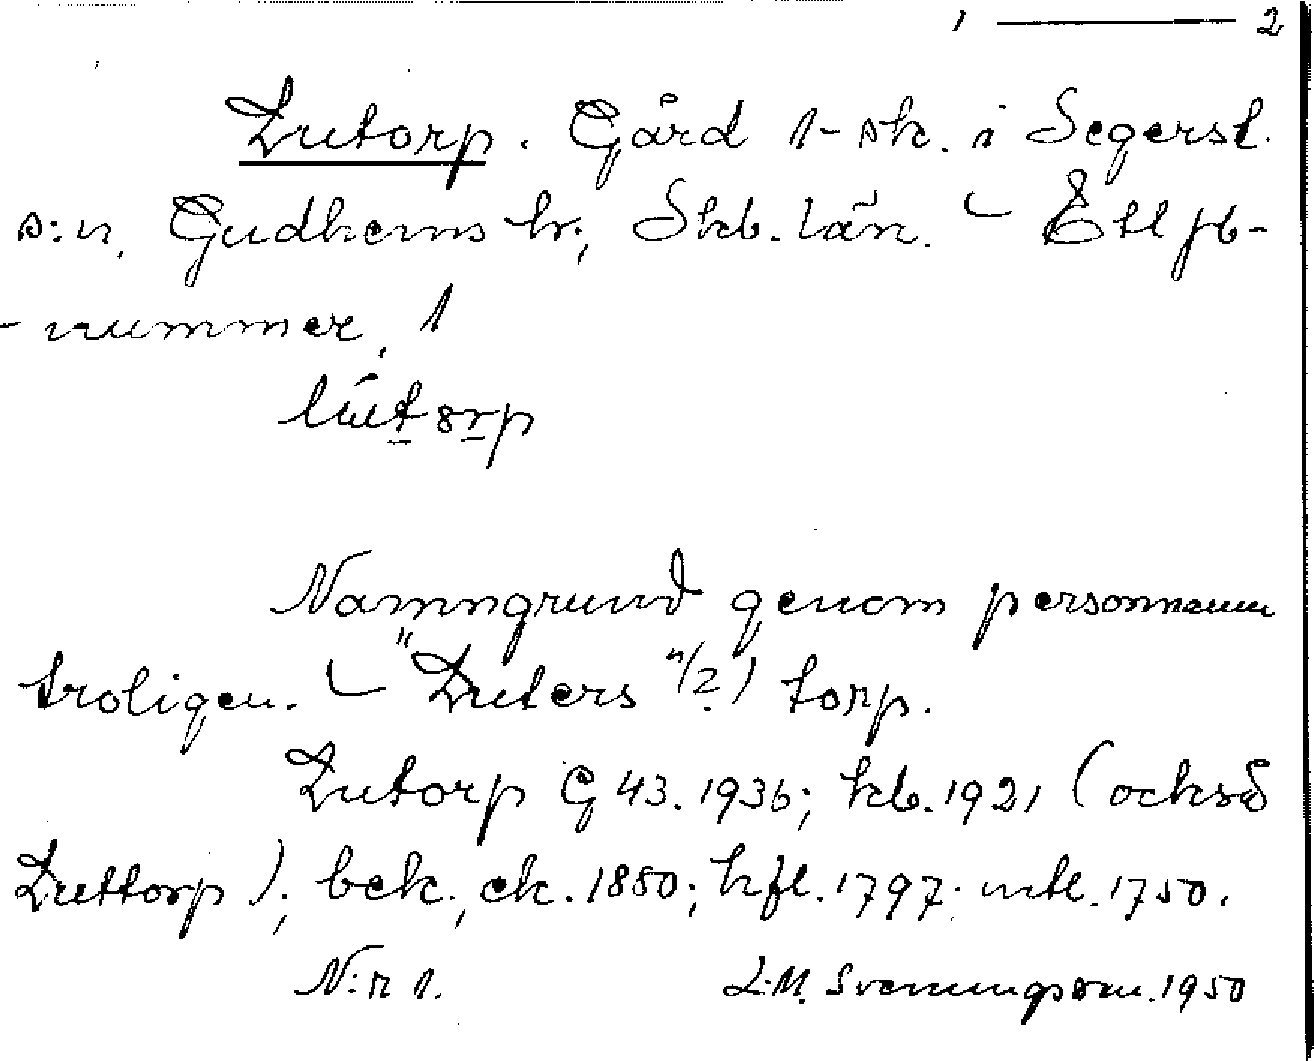 1 — 2
Lutorp. Gård 1-sk. i Segerst.
s:n, Gudhems hr; Skb. län. — Ett jb-
- nummer, 1
Namngrund genom personnamn
troligen. — "Luters "(?) torp.
Lutorp G 43. 1936; kb. 1921 (också
Luttorp); bek., ek. 1880; hfl. 1797; mtl. 1750.
N:r 1. L:M. Svenungsson. 1950